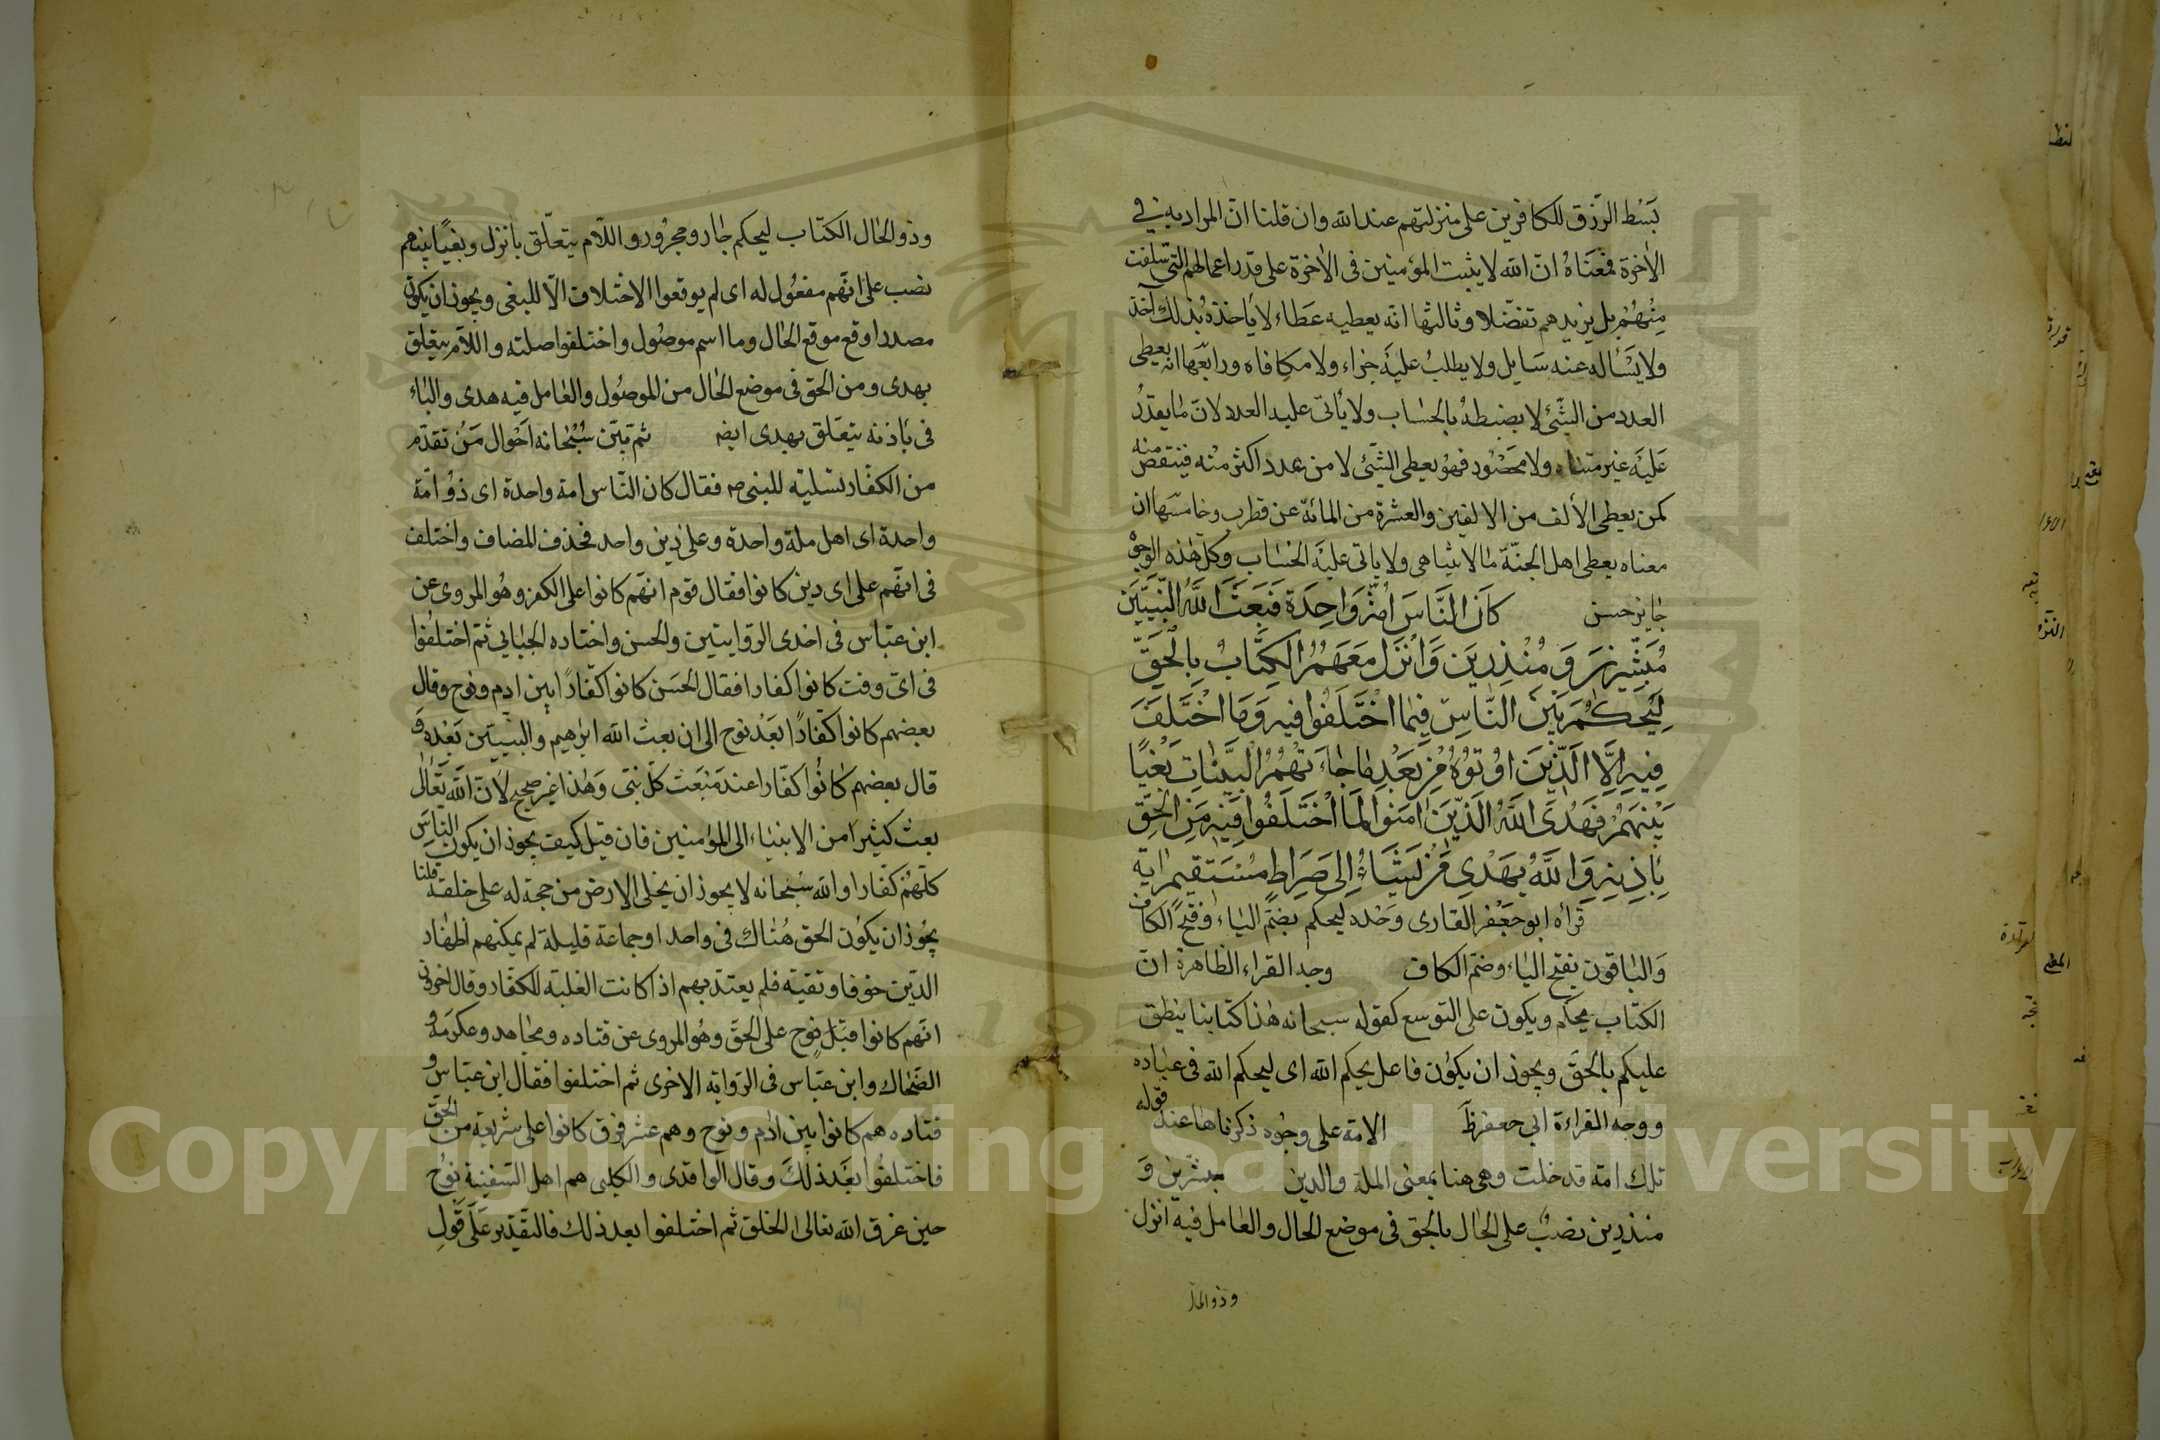 بسط الرزق للكافرين على منزلتهم عند الله وان قلنا ان المراد به في
الاخرة فمعناه ان الله لا يثبت المؤمنين فى الاخرة على قدر اعمالهم التى سلفت
منهم بل يزيدهم تفضلا وثالثها انه يعطيه عطاء لا ياخذه بذلك احد
ولا يسأله عنه سايل ولا يطلب عليه جزاء ولا مكافاه ورابعها انه يعطى
العدد من الشئ لا يضبطه بالحساب ولا يأتى عليه العدد لان ما يقدر
عليه غير متناه ولا محصور فهو يعطى الشئ لا من عدد اكثر منه فينتقص منه
كمن يعطى الألف من الالفين والعشرة من المائة عن قطرب وخامسها ان
معناه يعطى اهل الجنة ما لا يتناهى ولا ياتى عليه الحساب وكل هذه الوجوه
جايز حسن كان الناس امة واحدة فبعث الله النبيين
مبشرين ومنذرين وانزل معهم الكتاب بالحق
ليحكم بين الناس فيما اختلفوا فيه وما اختلف
فيه الا الذين اوتوه من بعد ما جاءتهم البينات بغيا
بينهم فهدى الله الذين امنوا لما اختلفوا فيه من الحق
باذنه والله يهدى من يشاء الى صراط مستقيم اية
قراه ابو جعفر القارى وحده ليحكم بضم الياء وفتح الكاف
والباقون بفتح الياء وضم الكاف وجد القراء الظاهرة ان
الكتاب يحكم ويكون على التوسع كقوله سبحانه هذا كتابنا ينطق
عليكم بالحق ويجوز ان يكون فاعل يحكم الله اى ليحكم الله فى عباده
ووجه القراءة ابى جعفر ظ الامة على وجوه ذكرناها عند قوله
تلك امة قد خلت وهى هنا بمعنى الملة والدين مبشرين و
منذرين نصب على الحال بالحق فى موضع الحال والعامل فيه انزل
وذو الحال
وذو الحال الكتاب ليحكم جار ومجرور واللام يتعلق بانزل وبغيا بينهم
نصب على انهم مفعول له اى لم يوقعوا الاختلاف الا للبغى ويجوز ان يكون
مصدرا وقع موقع الحال وما اسم موصول واختلفوا صلته واللام يتعلق
بهدى ومن الحق فى موضع الحال من الموصول والعامل فيه هدى والباء
فى باذنه يتعلق بهدى ايضه ثم بين سبحانه احوال من تقدم
من الكفار تسلية للنبى ص فقال كان الناس امة واحدة اى ذو امة
واحدة اى اهل ملة واحدة وعلى دين واحد فحذف المضاف واختلف
فى انهم على اى دين كانوا فقال قوم انهم كانوا على الكفر وهو المروى عن
ابن عباس فى احدى الروايتين والحسن واختاره الجبايي ثم اختلفوا
فى اى وقت كانوا كفارا فقال الحسن كانوا كفارا بين ادم ونوح وقال
بعضهم كانوا كفارا بعد نوح الى ان بعث الله ابرهيم والنبيين بعده و
قال بعضهم كانوا كفارا عند مبعث كل نبى وهذا غير صحيح لان الله تعالى
بعث كثيرا من الانبياء الى المؤمنين فان قيل كيف يجوز ان يكون الناس
كلهم كفارا والله سبحانه لا يجوز ان يخلى الارض من حجة له على خلقه قلنا
يجوز ان يكون الحق هناك فى واحد او جماعة قليلة لم يمكنهم اظهار
الدين خوفا وتقية فلم يعتد بهم اذا كانت الغلبة للكفار وقال اخرون
انهم كانوا قبل نوح على الحق وهو المروى عن قتاده ومجاهد وعكرمة و
الضحاك وابن عباس فى الرواية الاخرى ثم اختلفوا فقال ابن عباس و
قتاده هم كانوا بين ادم ونوح وهم عشر فرق كانوا على شريعة من الحق
فاختلفوا بعد ذلك وقال الواقدى والكلبى هم اهل السفينة نوح
حين غرق الله تعالى الخلق ثم اختلفوا بعد ذلك فالتقدير على قول
Copyright © King Saud University